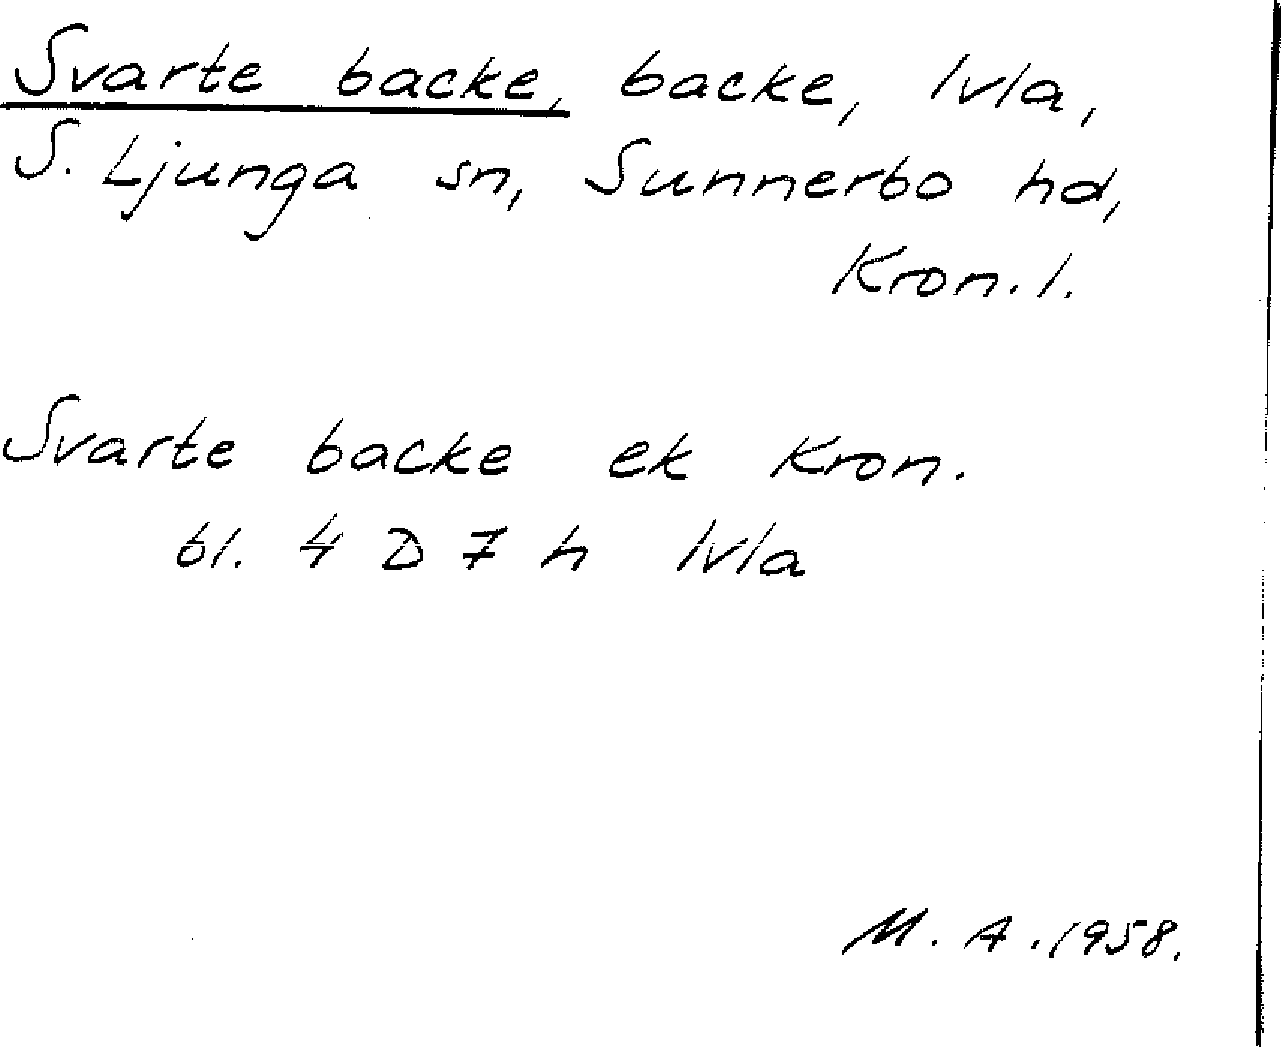 Svarte backe, backe, Ivla,
S. Ljunga sn, Sunnerbo hd,
Kron. l.
Svarte backe ek Kron.
bl. 4 D 7 h Ivla
M. A. 1958.